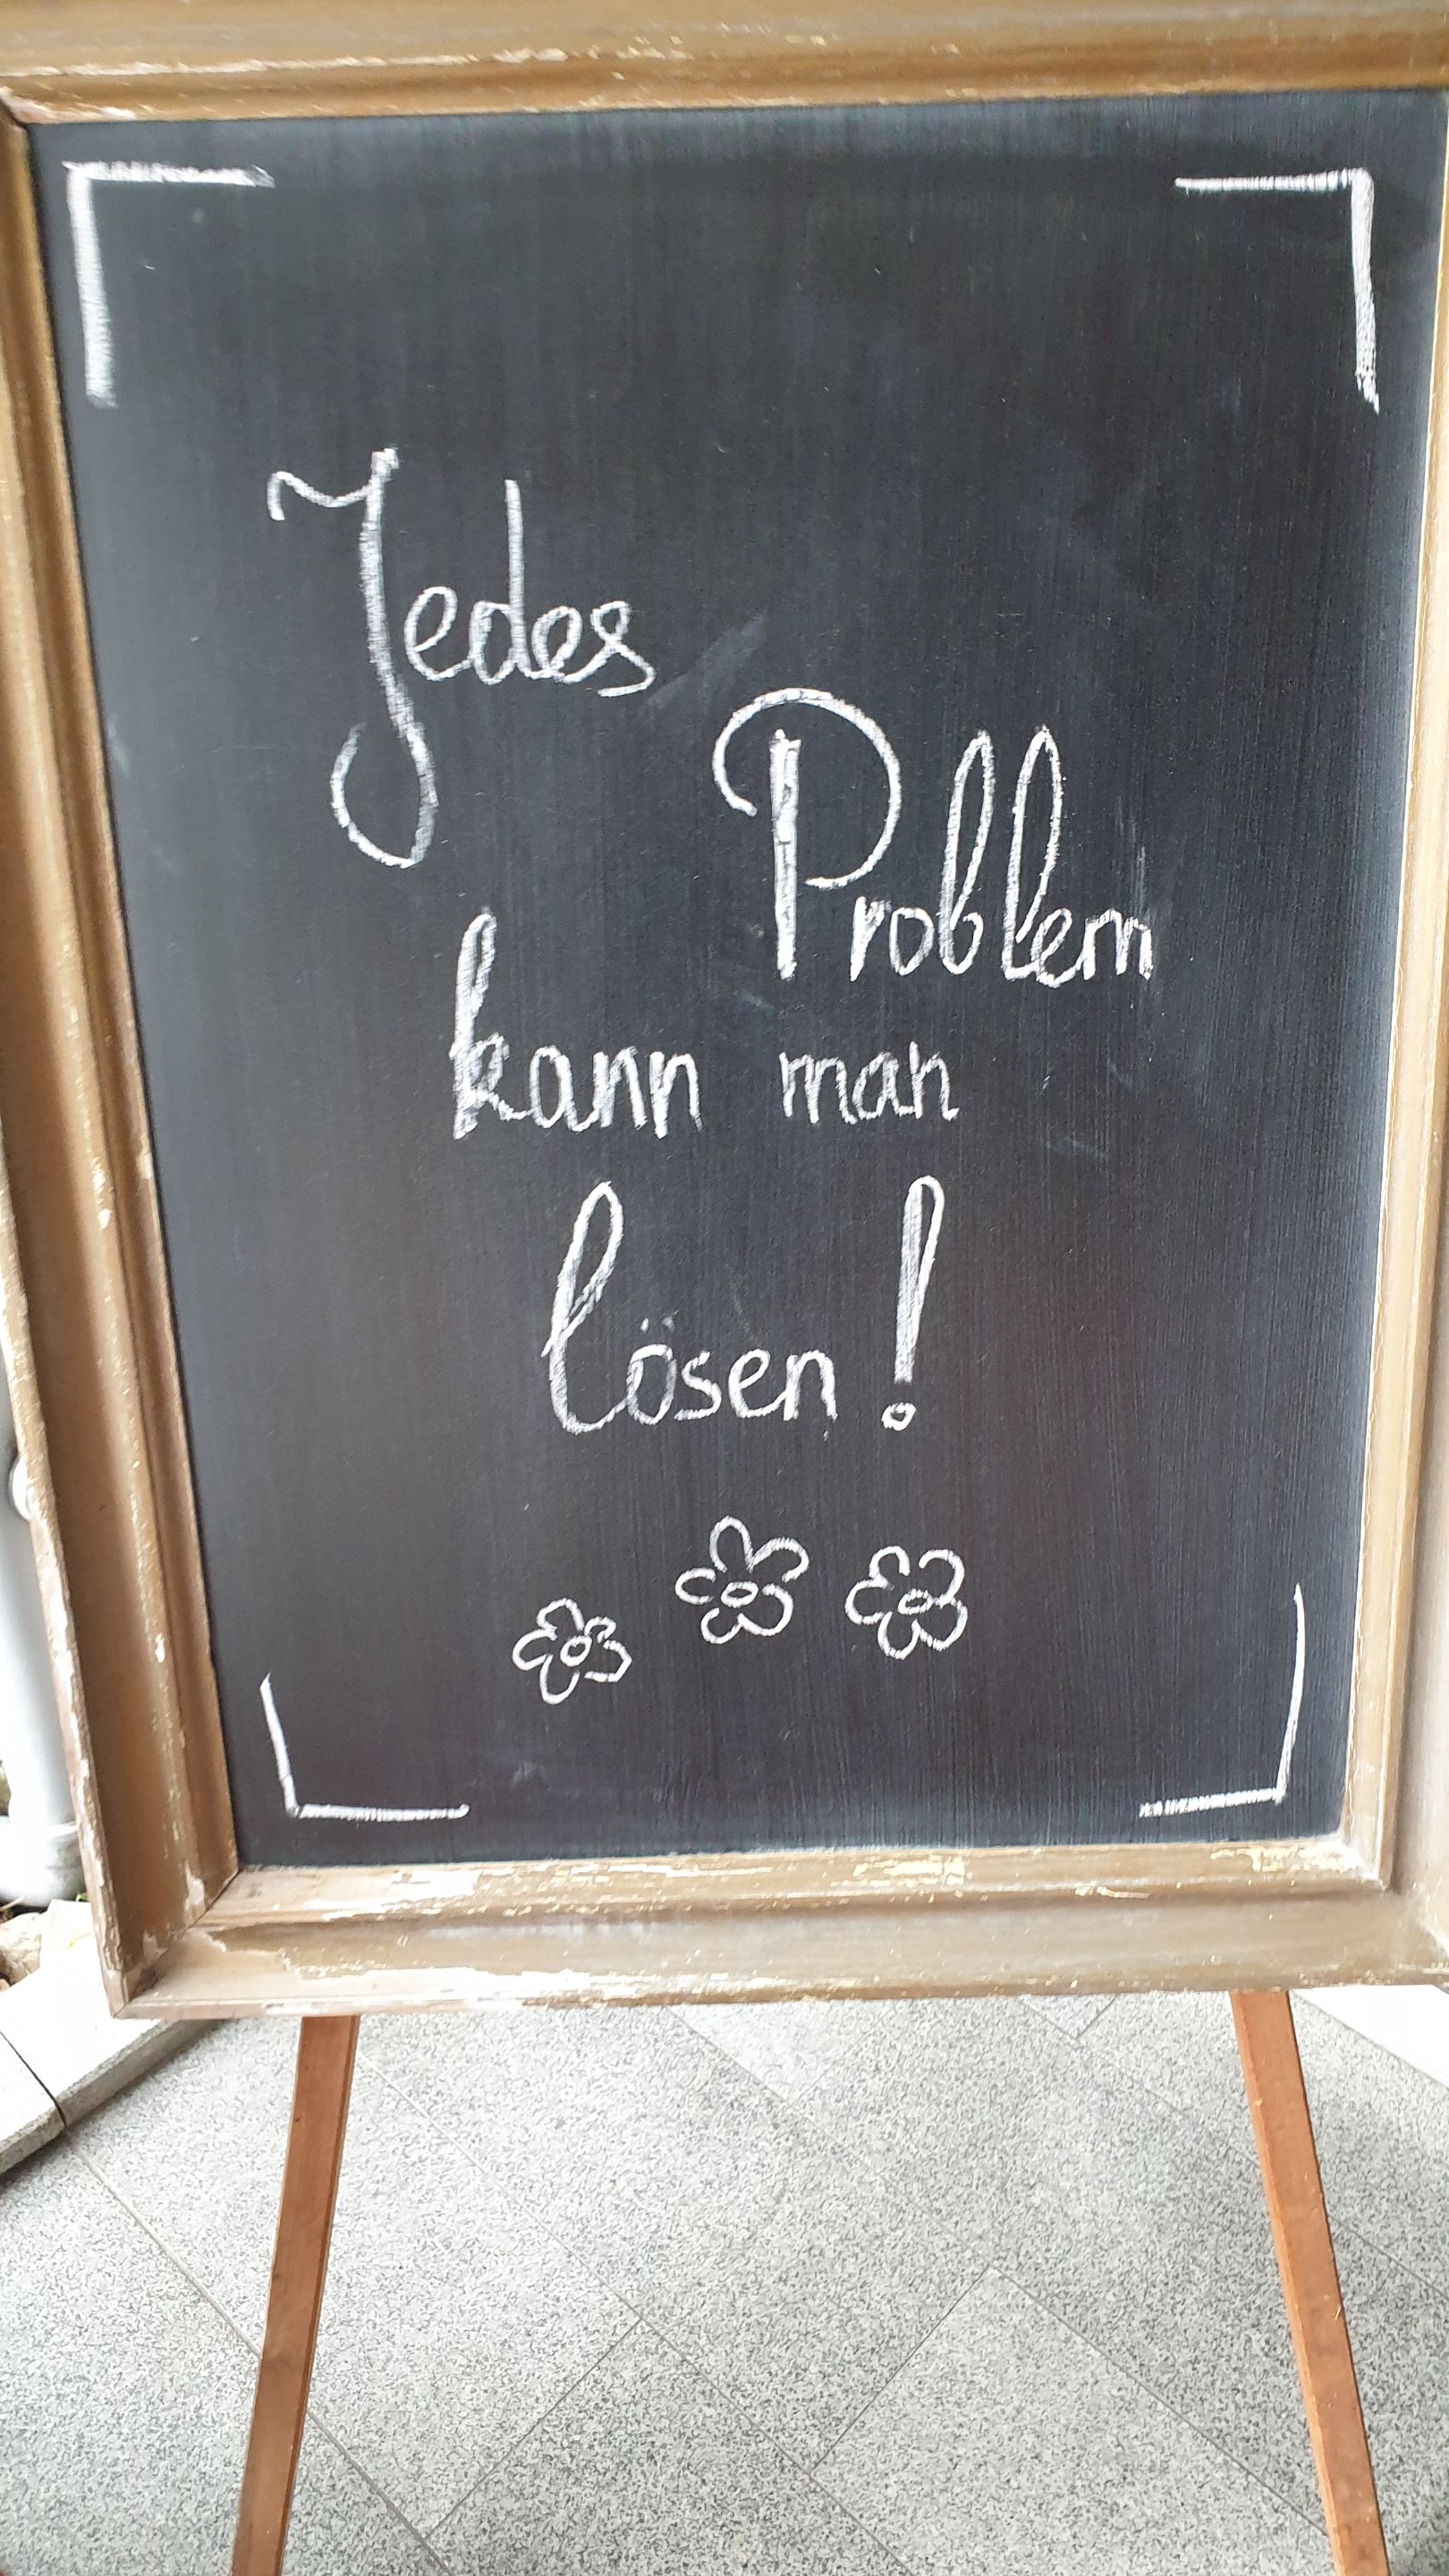 Jedes
Problem
kann man
lösen!